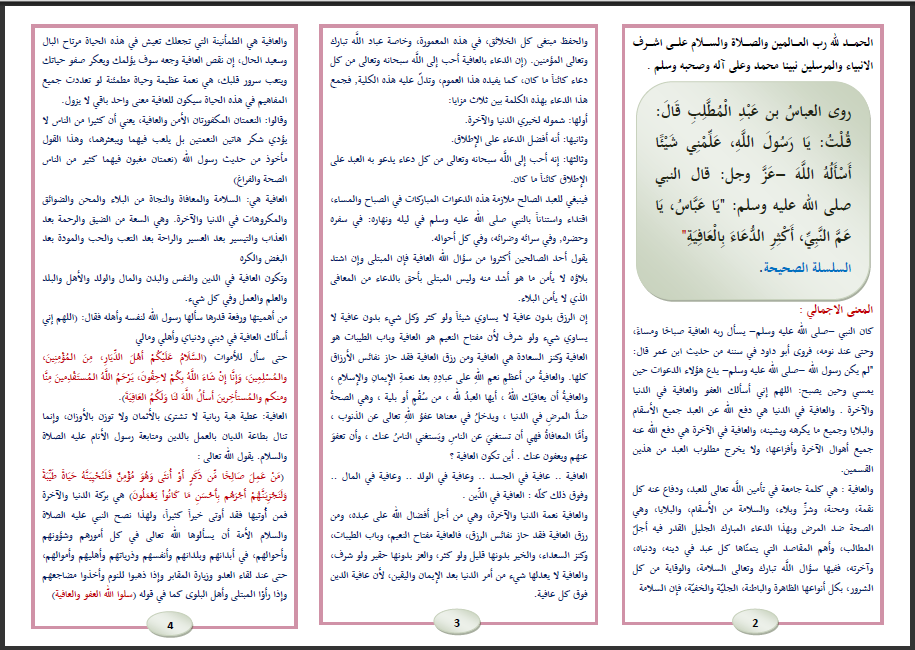 الحمد لله رب العالمين والصلاة والسلام على اشرف
الانبياء والمرسلين نبينا محمد وعلى آله وصحبه وسلم .
روى العباسُ بن عَبْدِ الْمُطَّلِبِ قَالَ:
قُلْتُ: يَا رَسُولَ اللَّهِ، عَلِّمْنِي شَيْئًا
أَسْأَلُهُ اللَّهَ –عَزَّ وجل: قال النبي
صلى الله عليه وسلم: "يَا عَبَّاسُ، يَا
عَمَّ النَّبِيِّ، أَكْثِرِ الدُّعَاءَ بِالْعَافِيَةِ"
السلسلة الصحيحة.
المعنى الاجمالي :
كان النبي –صلى الله عليه وسلم– يسأل ربه العافية صباحًا ومساءً،
وحتى عند نومه، فروى أبو داود في سننه من حديث ابن عمر قال:
"لم يكن رسول الله –صلى الله عليه وسلم– يدع هؤلاء الدعوات حين
يمسي وحين يصبح: اللهم إني أسألك العفو والعافية في الدنيا
والآخرة . والعافية في الدنيا هي دفع الله عن العبد جميع الأسقام
والبلايا وجميع ما يكرهه ويشينه، والعافية في الآخرة هي دفع الله عنه
جميع أهوال الآخرة وأفزاعها، ولا يخرج مطلوب العبد من هذين
القسمين.
والعافية : هي كلمة جامعة في تأمين اللَّه تعالى للعبد، ودفاع عنه كل
نقمة، ومحنة، وشرٍّ وبلاء، والسلامة من الأسقام، والبلايا، وهي
الصحة ضد المرض وبهذا الدعاء المبارك الجليل القدر فيه أجلّ
المطالب، وأهم المقاصد التي يتمنّاها كل عبد في دينه، ودنياه،
وآخرته، ففيها سؤال اللَّه تبارك وتعالى السلامة، والوقاية من كل
الشرور، بكل أنواعها الظاهرة والباطنة، الجليّة والخفيّة، فإن السلامة
2
والحفظ مبتغى كل الخلائق، في هذه المعمورة، وخاصة عباد اللَّه تبارك
وتعالى المؤمنين. (إن الدعاء بالعافية أحب إلى اللَّه سبحانه وتعالى من كل
دعاء كائناً ما كان، كما يفيده هذا العموم، وتدلّ عليه هذه الكلية، فجمع
هذا الدعاء بهذه الكلمة بين ثلاث مزايا:
أولها: شموله لخيري الدنيا والآخرة.
وثانيها: أنه أفضل الدعاء على الإطلاق.
وثالثها: إنه أحب إلى اللَّه سبحانه وتعالى من كل دعاء يدعو به العبد على
الإطلاق كائناً ما كان.
فينبغي للعبد الصالح ملازمة هذه الدعوات المباركات في الصباح والمساء،
اقتداء واستناناً بالنبي صلى الله عليه وسلم في ليله ونهاره: في سفره
وحضره، وفي سرائه وضرائه، وفي كل أحواله.
يقول أحد الصالحين أكثروا من سؤال الله العافية فإن المبتلى وإن اشتد
بلاؤه لا يأمن ما هو أشد منه وليس المبتلى بأحق بالدعاء من المعافى
الذي لا يأمن البلاء.
إن الرزق بدون عافية لا يساوي شيئاً ولو كثر وكل شيء بدون عافية لا
يساوي شيء ولو شرف لأن مفتاح النعيم هو العافية وباب الطيبات هو
العافية وكنز السعادة هي العافية ومن رزق العافية فقد حاز نفائس الأرزاق
كلها. والعافيةُ من أعظمِ نعمِ اللهِ على عبادِهِ بعد نعمةِ الإيمانِ والإسلامِ ،
والعافيةُ أن يعافيَك اللهُ ، أيها العبدُ لله ، من سُقْمٍ أو بلية ، وهي الصحةُ
ضدَّ المرضِ في الدنيا ، ويدخلُ في معناها عفوُ اللهِ تعالى عن الذنوب ،
وأمَّا المعافاةُ فهي أن تستغنيَ عن الناسِ ويَستغنيَ الناسُ عنك ، وأن تعفوَ
عنهم ويعفون عنك . أين تكون العافية ؟
العافية .. عافية في الجسد .. وعافية في الولد .. وعافية في المال ..
وفوق ذلك كلّه : العافية في الدّين .
والعافية نعمة الدنيا والآخرة، وهي من أجل أفضال الله على عبده، ومن
رزق العافية فقد حاز نفائس الرزق، فالعافية مفتاح النعيم، وباب الطيبات،
وكنز السعداء، والخير بدونها قليل ولو كثر، والعز بدونها حقير ولو شرف،
والعافية لا يعدلها شيء من أمر الدنيا بعد الإيمان واليقين، لأن عافية الدين
فوق كل عافية.
3
والعافية هي الطمأنينة التي تجعلك تعيش في هذه الحياة مرتاح البال
وسعيد الحال، إن نقص العافية وجعه سوف يؤلمك ويعكر صفو حياتك
ويتعب سرور قلبك، هي نعمة عظيمة وحياة مطمئنة لو تعددت جميع
المفاهيم في هذه الحياة سيكون للعافية معنى واحد باقي لا يزول.
وقالوا: النعمتان المكفورتان الأمن والعافية، يعني أن كثيرا من الناس لا
يؤدي شكر هاتين النعمتين بل يلعب فيهما ويبعثرهما، وهذا القول
مأخوذ من حديث رسول الله (نعمتان مغبون فيهما كثير من الناس
الصحة والفراغ)
العافية هي: السلامة والمعافاة والنجاة من البلاء والمحن والضوائق
والمكروهات في الدنيا والآخرة. وهي السعة من الضيق والرحمة بعد
العذاب والتيسير بعد العسير والراحة بعد التعب والحب والمودة بعد
البغض والكره
وتكون العافية في الدين والنفس والبدن والمال والولد والأهل والبلد
والعلم والعمل وفي كل شيء.
من أهميتها ورفعة قدرها سألها رسول الله لنفسه وأهله فقال: (اللهم إني
أسألك العافية في ديني ودنياي وأهلي ومالي
حتى سأل للأموات (السَّلَامُ عَلَيْكُمْ أَهْلَ الدِّيَارِ، مِنَ المُؤْمِنِينَ،
والمُسْلِمِينَ، وَإِنَّا إِنْ شَاءَ اللَّهُ بِكُمْ لاحِقُونَ، يَرْحَمُ اللَّهُ المُسْتَقْدِمِينَ مِنَّا
ومنكم والمُسْتَأْخِرِينَ أسألُ اللَّهَ لنَا وَلَكُمُ العَافِيَةَ).
العافية: عطية هبة ربانية لا تشترى بالأثمان ولا توزن بالأوزان، وإنما
تنال بطاعة الديان بالعمل بالدين ومتابعة رسول الأنام عليه الصلاة
والسلام. يقول الله تعالى :
(مَنْ عَمِلَ صَالِحًا مِّن ذَكَرٍ أَوْ أُنثَى وَهُوَ مُؤْمِنٌ فَلَنُحْيِيَنَّهُ حَيَاةً طَيِّبَةً
وَلَنَجْزِيَنَّهُمْ أَجْرَهُم بِأَحْسَنِ مَا كَانُوا يَعْمَلُونَ) هي بركة الدنيا والآخرة
فمن أُوتيها فقد أوتى خيراً كثيراً، ولهذا نصح النبي عليه الصلاة
والسلام الأمة أن يسألوها الله تعالى في كل أمورهم وشؤونهم
وأحوالهم، في أبدانهم وبلدانهم وأنفسهم وذرياتهم وأهليهم وأموالهم،
حتى عند لقاء العدو وزيارة المقابر وإذا ذهبوا للنوم وأخذوا مضاجعهم
وإذا رأوا المبتلى وأهل البلوى كما في قوله (سلوا الله العفو والعافية)
4